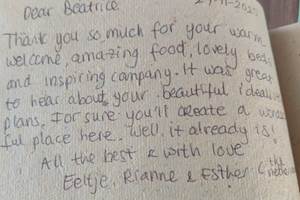 Dear Beatrice
Thank you so much for your warm
welcome, amazing food, lovely beds
and inspiring company. It was great
to hear about your beautiful ideals
plans. For sure you'll create a wonder
ful place here. Well, it already is!
All the best & with love
Eeltje, Rianne & Esther (the